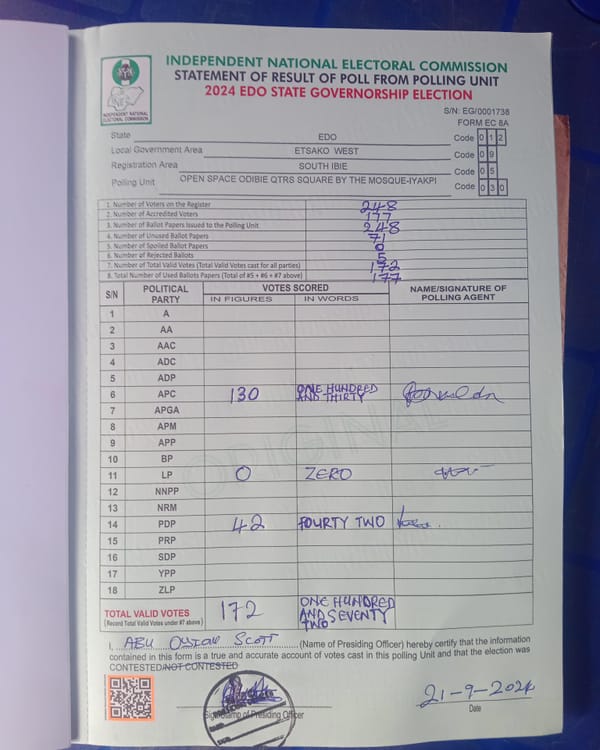 INDEPENDENT NATIONAL ELECTORAL COMMISSION
STATEMENT OF RESULT OF POLL FROM POLLING UNIT
2024 EDO STATE GOVERNORSHIP ELECTION
INEC
INDEPENDENT NATIONAL
ELECTORAL COMMISSION
S/N: EG/0001738
FORM EC 8A
State EDO Code 0 1 2
Local Government Area ETSAKO WEST Code 0 9
Registration Area SOUTH IBIE Code 0 5
Polling Unit OPEN SPACE ODIBIE QTRS SQUARE BY THE MOSQUE-IYAKPI Code 0 3 0
1. Number of Voters on the Register 248
2. Number of Accredited Voters 177
3. Number of Ballot Papers Issued to the Polling Unit 248
4. Number of Unused Ballot Papers 71
5. Number of Spoiled Ballot Papers 0
6. Number of Rejected Ballots 5
7. Number of Total Valid Votes (Total Valid Votes cast for all parties) 172
8. Total Number of Used Ballots Papers (Total of #5 + #6 + #7 above) 177
S/N POLITICAL PARTY VOTES SCORED NAME/SIGNATURE OF POLLING AGENT
IN FIGURES IN WORDS
1 A
2 AA
3 AAC
4 ADC
5 ADP
6 APC 130 ONE HUNDRED AND THIRTY
7 APGA
8 APM
9 APP
10 BP
11 LP 0 ZERO
12 NNPP
13 NRM
14 PDP 42 FOURTY TWO
15 PRP
16 SDP
17 YPP
18 ZLP
ORIGINAL
TOTAL VALID VOTES 172 ONE HUNDRED AND SEVENTY TWO
(Record Total Valid Votes under #7 above)
I, ABU SCOTT (Name of Presiding Officer) hereby certify that the information
contained in this form is a true and accurate account of votes cast in this polling Unit and that the election was
CONTESTED/NOT CONTESTED
21-9-2024
Sign/Stamp of Presiding Officer
Date